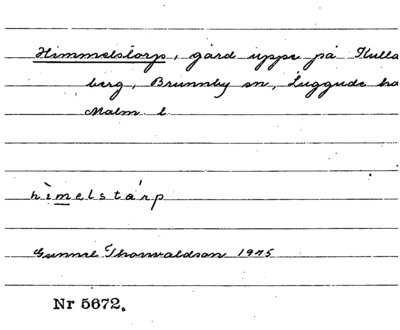 Himmelstorp, gård uppe på Kulla
berg, Brunnby sn, Luggude ha
Malm. l.
hìmelstárp
Gunnel Thorwaldson 1975
Nr 5672.